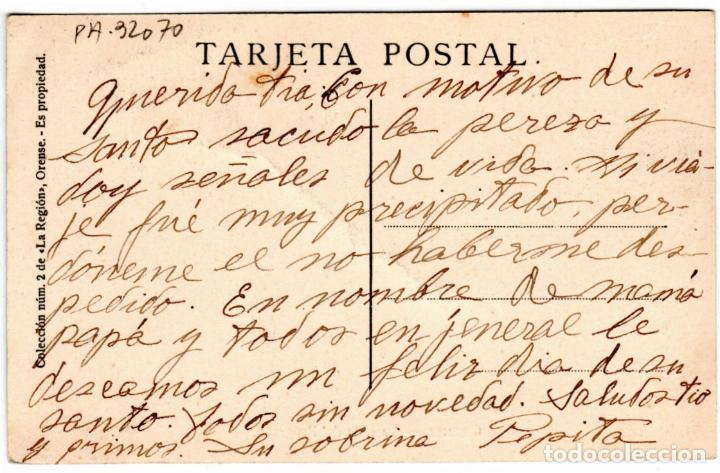 PA-92070
TARJETA POSTAL.
Querida tia, Con motivo de su
santo sacudo la pereza y
doy señales de vida. Mi via-
je fué muy precipitado, per-
dóneme el no haberme des-
pedido. En nombre de mamá
papá y todos en jeneral le
deseamos un feliz dia de su
santo. Todos sin novedad. Saludos tio
y primos. Su sobrina Pepita
Colección núm. 2 de «La Región», Orense. - Es propiedad.
todocoleccion